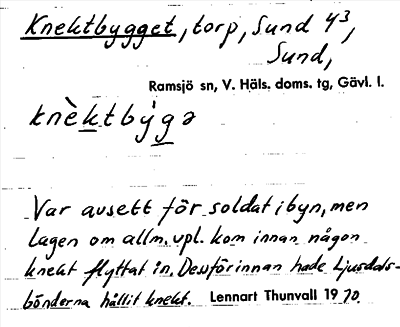 Knektbygget, torp, Sund 4³,
Sund,
Ramsjö sn, V. Häls. doms. tg, Gävl. l.
knèktbýgə
Var avsett för soldat i byn, men
lagen om allm. vpl. kom innan någon
knekt flyttat in. Dessförinnan hade Ljusdals-
bönderna hållit knekt. Lennart Thunvall 1970.